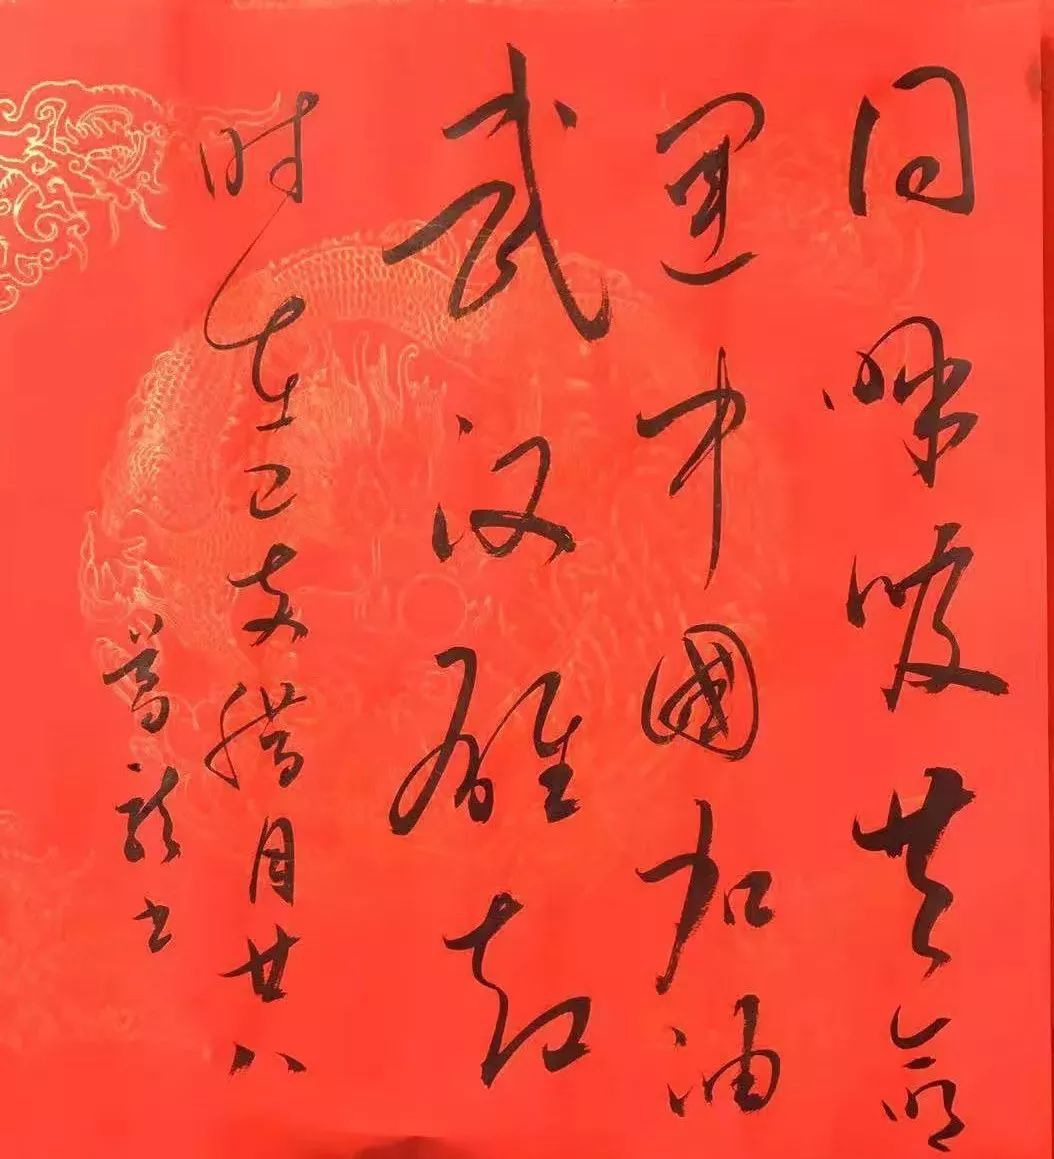 同呼吸共命
運中國加油
武汉雄起
时在己亥腊月廿八
龍书